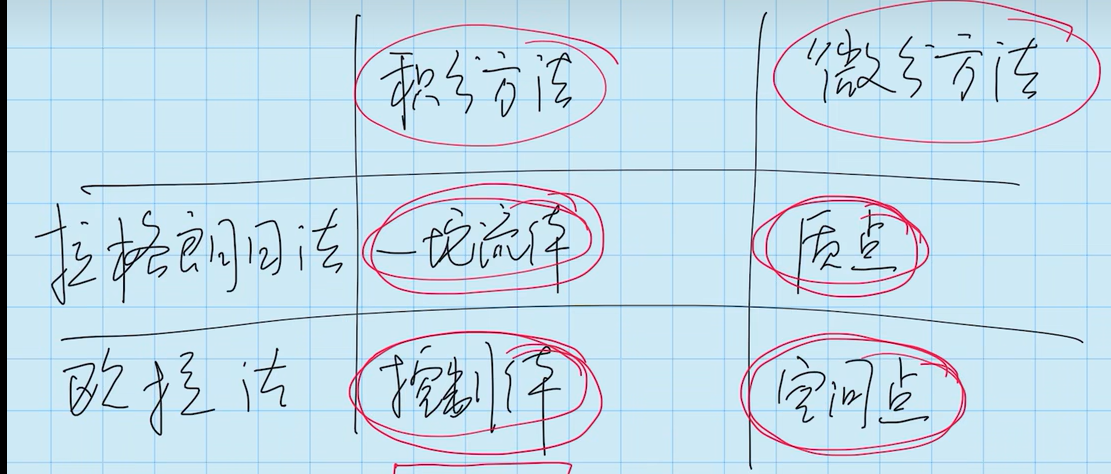 积分方法 微分方法
拉格朗日法 一坨流体 质点
欧拉法 控制体 空间点